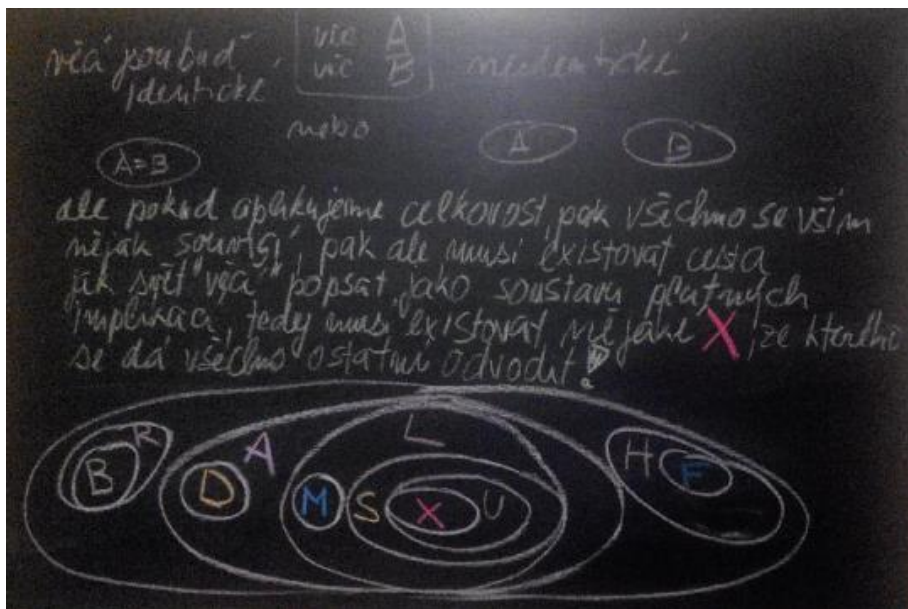 věci jsou buď
identické
věc A
věc B
neidentické
nebo
A=B
A
B
ale pokud aplikujeme celkovost, pak všechno se vším
nějak "souvisí", pak ale musí existovat cesta
jak svět "věcí" popsat jako soustavu platných
implikací, tedy musí existovat nějaké X, ze kterého
se dá všechno ostatní odvodit!
B R D A M S L X U H F